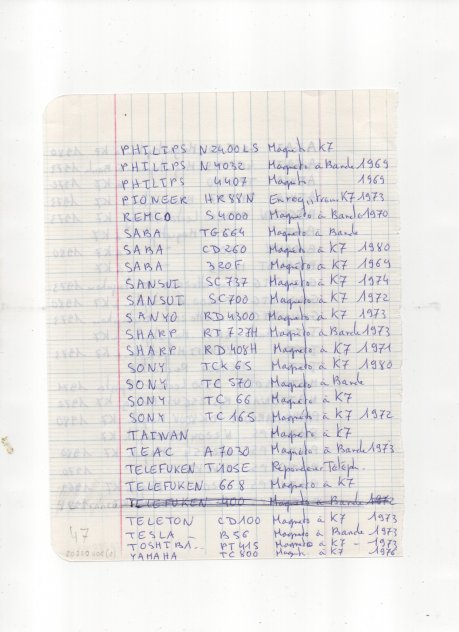 PHILIPS N2400LS Magneto à K7
PHILIPS N4032 Magneto à Bande 1969
PHILIPS 4407 Magneto 1969
PIONEER HR88N Enregistreur K7 1973
REMCO S4000 Magneto à Bande 1970
SABA TG664 Magneto à Bande
SABA CD260 Magneto à K7 1980
SABA 320F Magneto à K7 1969
SANSUI SC737 Magneto à K7 1974
SANSUI SC700 Magneto à K7 1972
SANYO RD4300 Magneto à K7 1973
SHARP RT727H Magneto à Bande 1973
SHARP RD408H Magneto à K7 1971
SONY TCK65 Magneto à K7 1980
SONY TC570 Magneto à Bande
SONY TC66 Magneto à K7
SONY TC165 Magneto à K7 1972
TAIWAN Magneto à K7
TEAC A7030 Magneto à Bande 1973
TELEFUKEN T10SE Répondeur Téléph.
TELEFUKEN 668 Magneto à K7
TELEFUKEN 400 Magneto à Bande 1972
TELETON CD100 Magneto à K7 1973
TESLA - B56 Magneto à Bande 1973
TOSHIBA.. PT415 Magneto à K7 - 1973
YAMAHA TC800 Magneto à K7 1976
47